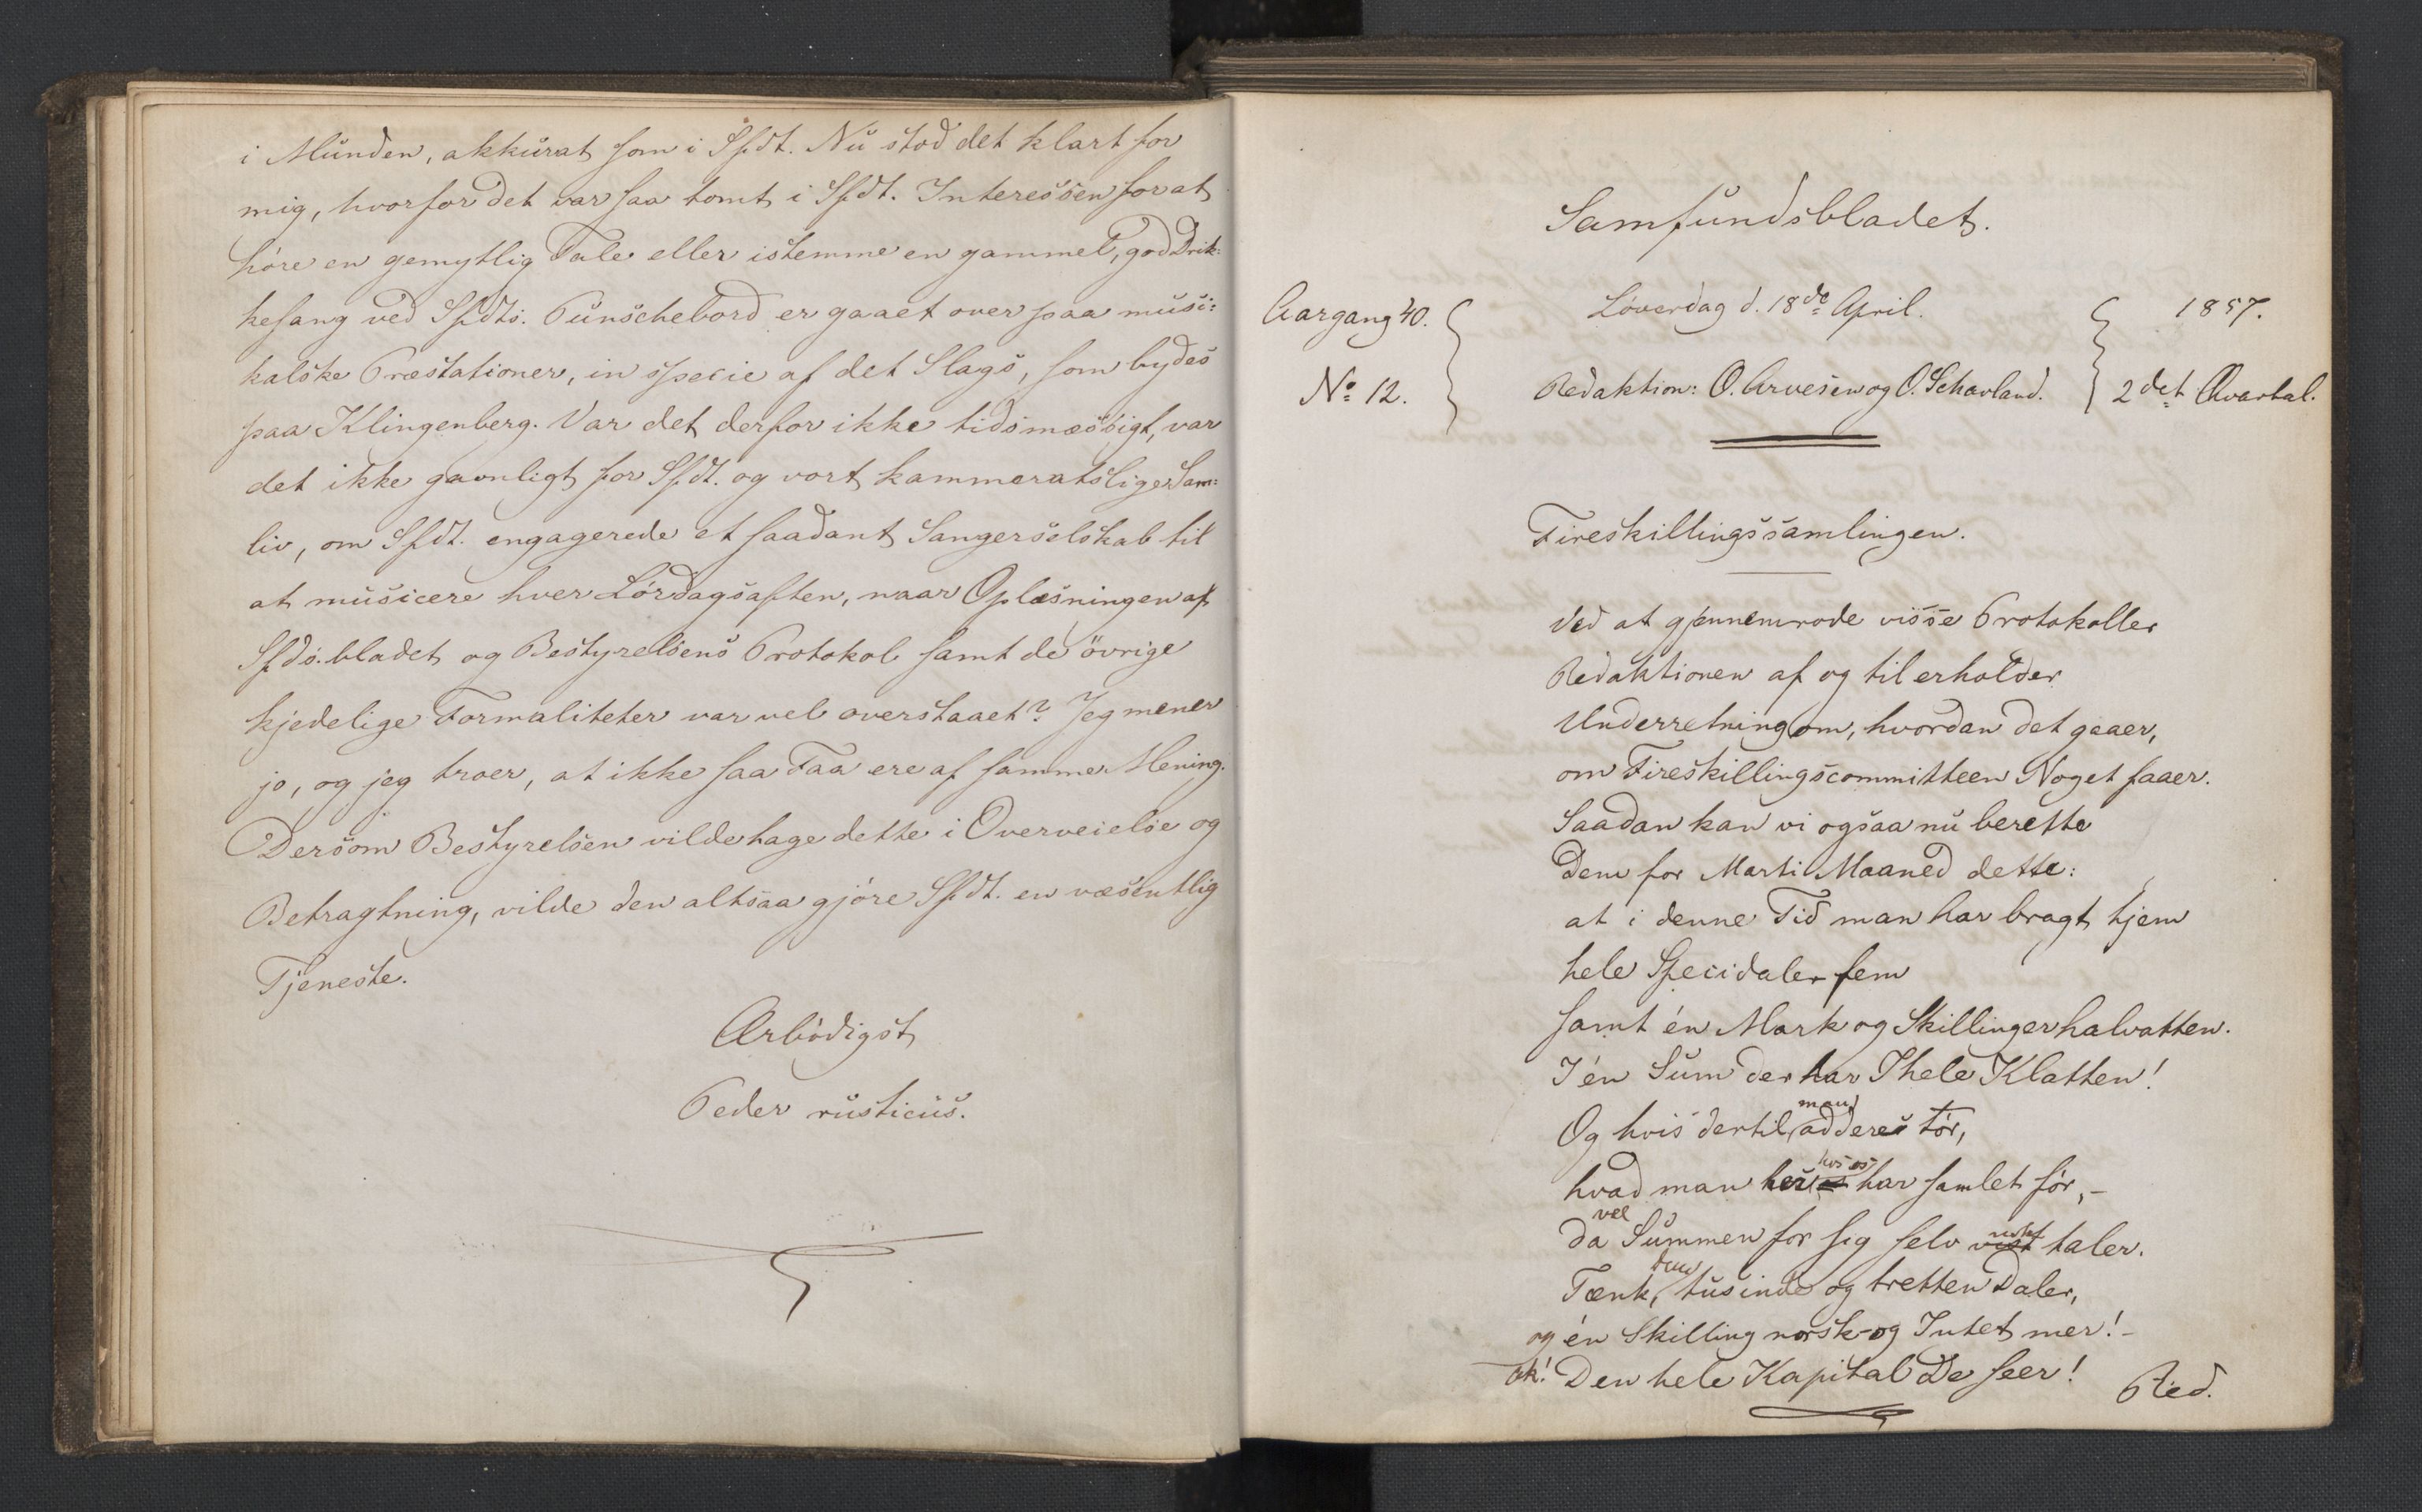 i Munden, akkurat som i Sfdt. Nu stod det klart for
mig, hvorfor det var saa tomt i Sfdt. Interessen for at
høre en gemytlig Tale eller istemme en gammel, god Drik-
kesang ved Sfdts. Punschebord er gaaet over paa musi-
kalske Præstationer, in specie af det Slags, som bydes
paa Klingenberg. Var det derfor ikke tidsmæssigt, var
det ikke gavnligt for Sfdt. og vort kammeratslige Sam-
liv, om Sfdt. engagerede et saadant Sangerselskab til
at musicere hver Lørdagsaften, naar Oplæsningen af
Sfds.bladet og Bestyrelsens Protokol samt de øvrige
kjedelige Formaliteter var vel overstaaet? Jeg mener
jo, og jeg troer, at ikke saa Faa ere af samme Mening.
Dersom Bestyrelsen vilde tage dette i Overveielse og
Betragtning, vilde den altsaa gjøre Sfdt. en væsentlig
Tjeneste.
Ærbødigst
Peder rusticus.
Samfundsbladet.
Aargang 40. Løverdag d. 18de April. 1857.
No 12. Redaktion: O. Arvesen og O. Schavland. 2det Qvartal.
Fireskillingssamlingen.
Ved at gjennemrode visse Protokoller
Redaktionen af og til erholder
Underretning om, hvordan det gaaer,
om Fireskillingscommitteen Noget faaer.
Saadan kan vi ogsaa nu berette
Dem for Marti Maaned dette:
at i denne Tid man har bragt hjem
hele Specidaler fem
samt én Mark og Skillinger halvatten.
I én Sum der har I hele Klatten!
Og hvis dertil man adderes tør,
hvad man hos os har samlet før, -
da vel Summen for sig selv nok taler.
Tænk, dem, tusinde og tretten Daler,
og én Skilling norsk og Intet mer! -
ak! Den hele Kapital De seer!
Red.